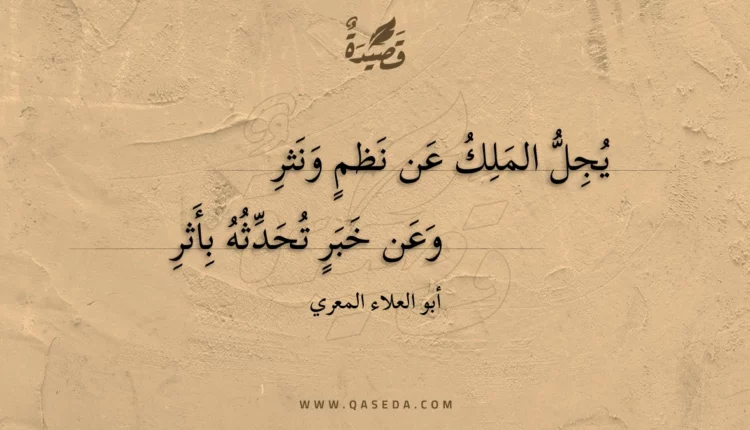 قَصِيدَةٌ
يُجِلُّ المَلِكُ عَن نَظمٍ وَنَثرِ
وَعَن خَبَرٍ تُحَدِّثُهُ بِأَثرِ
أبو العلاء المعري
WWW.QASEDA.COM